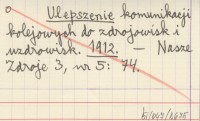 Ulepszenie komunikacji
kolejowych do zdrojowisk i
uzdrowisk. 1912. — Nasze
Zdroje 3, nr 5: 74.